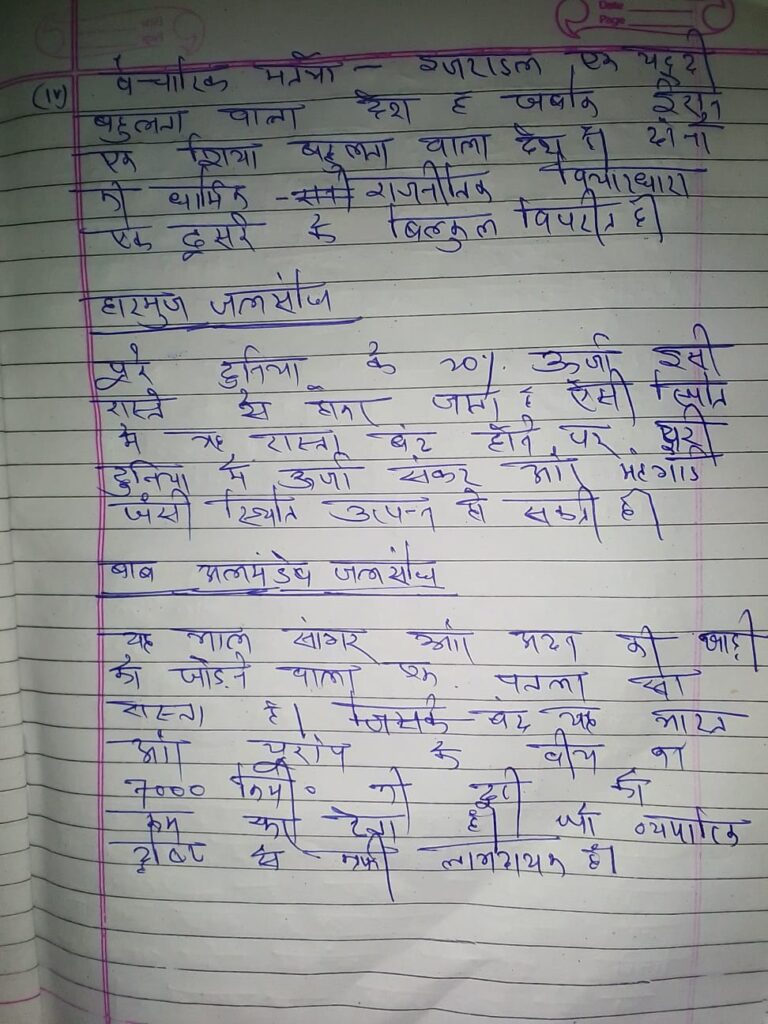 Date
Page
(iv) वैचारिक मतभेद - इजराइल एक यहूदी
बहुलता वाला देश है जबकि ईरान
एक शिया बहुलता वाला देश है। दोनो
की धार्मिक राजनीतिक विचारधारा
एक दूसरे के बिलकुल विपरीत है।
हारमुज जलसंधि
पूरे दुनिया के 20% ऊर्जा इसी
रास्ते से होकर जाता है ऐसी स्थिति
मे यह रास्ता बंद होने पर पूरी
दुनिया मे ऊर्जा संकट और महगाई
जैसी स्थिति उत्पन्न हो सकती है।
बाब अलमंडेब जलसंधि
यह लाल सागर और अदन की खाड़ी
को जोड़ने वाला एक पतला सा
रास्ता है। जिसके बंद यह भारत
और यूरोप के बीच का
7000 किमी० की दूरी को
कम कर देता है। जो व्यापारिक
दृष्टि से काफी लाभदायक है।